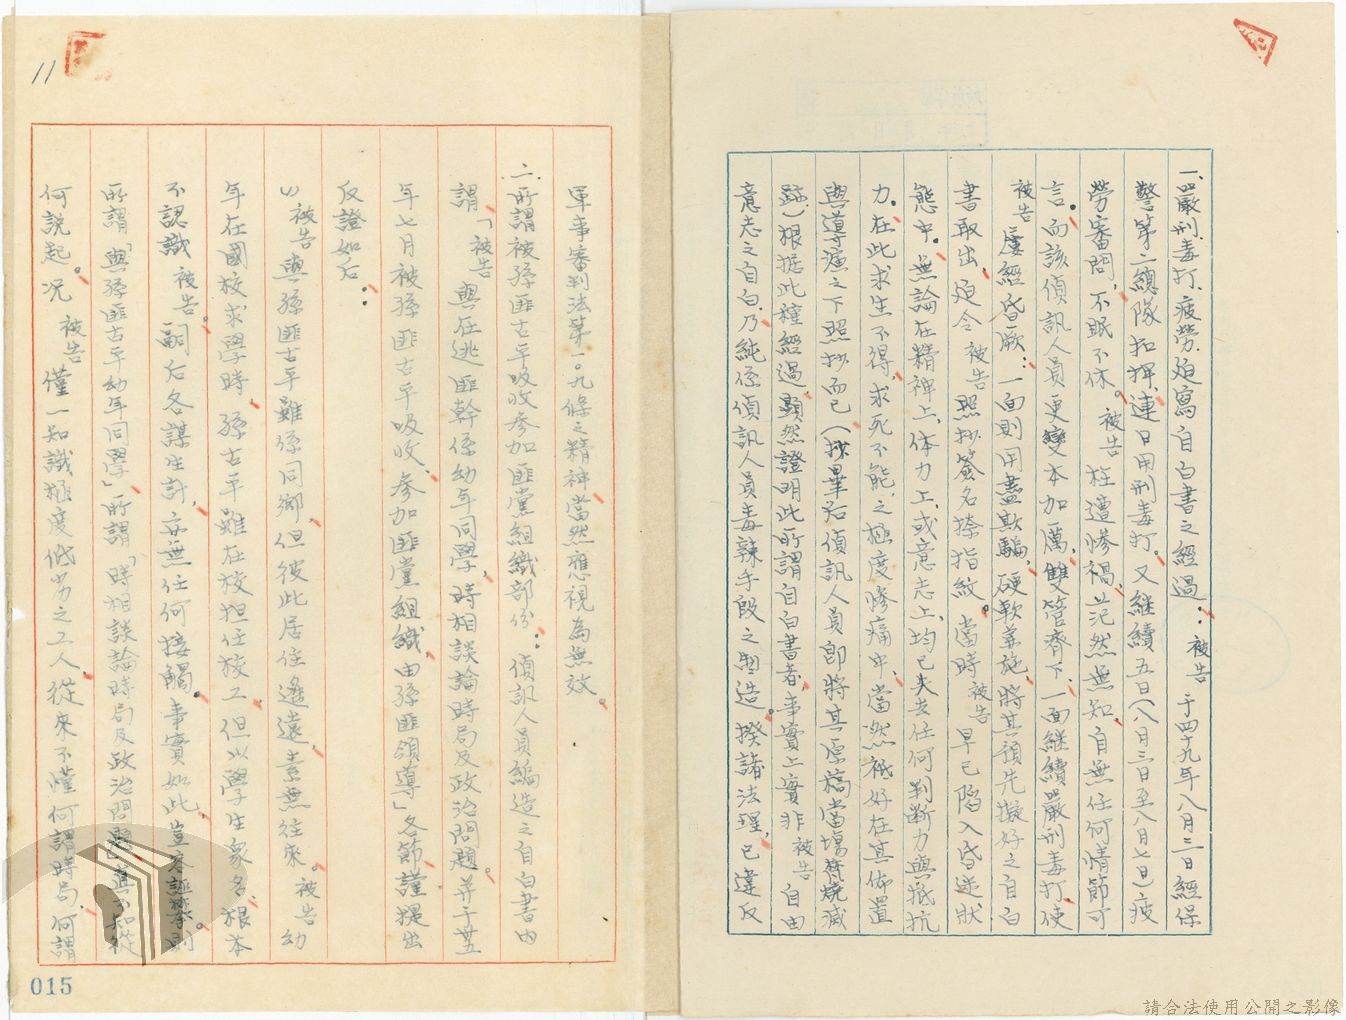 一、嚴刑毒打、疲勞、迫寫自白書之經過：被告于四十九年八月三日經保
警第二總隊扣押、連日用刑毒打。又継續五日(八月三日至八月七日)疲
勞審問、不眠不休。被告枉遭慘禍、茫然無知、自無任何情節可
言。而該偵訊人員更變本加厲、雙管齊下、一面継續嚴刑毒打、使
被告屢經昏厥：一面則用盡欺騙、硬軟兼施、將其預先擬好之自白
書取出、迫令被告照抄簽名捺指紋。當時被告早已陷入昏迷狀
態中。無論在精神上、体力上、或意志上、均已失去任何判斷力與抵抗
力。在此求生不得、求死不能、之極度慘痛中、當然祗好在其佈置
與導演之下照抄而已(抄畢后偵訊人員即將其原稿當塲焚燒滅
跡)根据此種經過、顯然證明此所謂自白書者、事實上實非被告自由
意志之自白、乃純係偵訊人員毒辣手段之製造。揆諸法理、已違反
11
軍事審判法第一〇九條之精神、當然應視為無效。
二、所謂被孫匪古平吸收参加匪黨組織部份：偵訊人員編造之自白書內
謂、「被告與在逃匪幹係幼年同學、時相談論時局及政治問題。并于卅五
年七月被孫匪古平吸收、参加匪黨組織、由孫匪領導」各節、謹提出
反證如后：
(1)被告與孫匪古平雖係同鄉、但彼此居住遙遠、素無往來。被告幼
年在國校求學時、孫古平雖在校担任校工、但以學生衆多、根本
不認識被告。嗣后各謀生計、亦無任何接觸。事實如此、豈容誣攀。則
所謂「與孫匪古平幼年同學」所謂「時相談論時局及政治問題」真不知從
何說起。况被告僅一知識極度低劣之工人、從來不懂何謂時局、何謂
015
請合法使用公開之影像